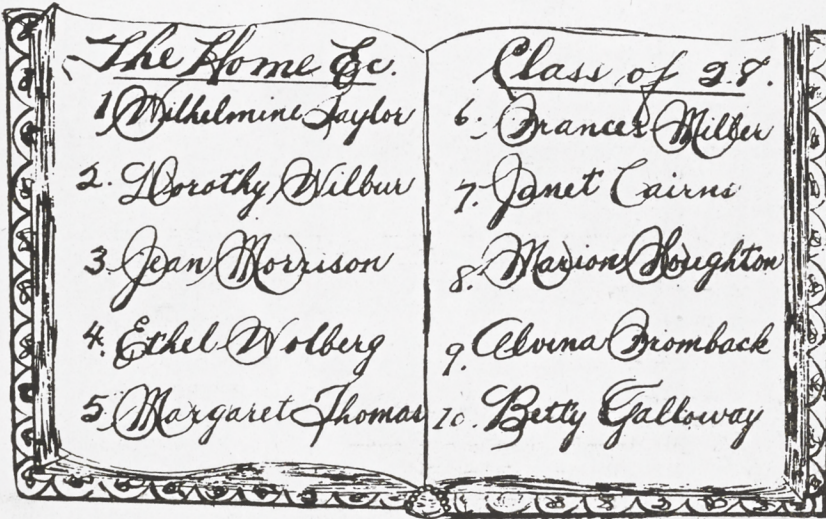 The Home Ec.
1. Wilhelmine Taylor
2. Dorothy Wilbur
3. Jean Morrison
4. Ethel Wolberg
5. Margaret Thomas
Class of 28.
6. Frances Miller
7. Janet Cairns
8. Marion Houghton
9. Alvina Bromback
10. Betty Galloway